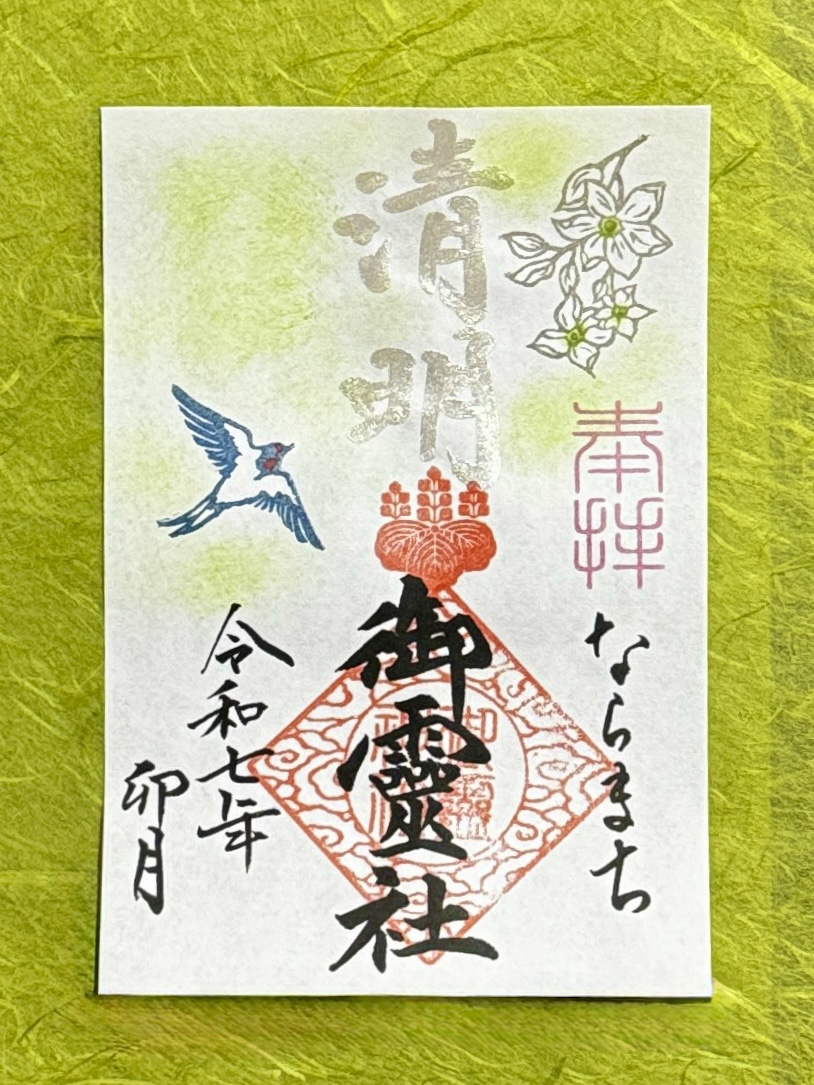 奉拝
ならまち
清明
御靈社
令和七年
卯月